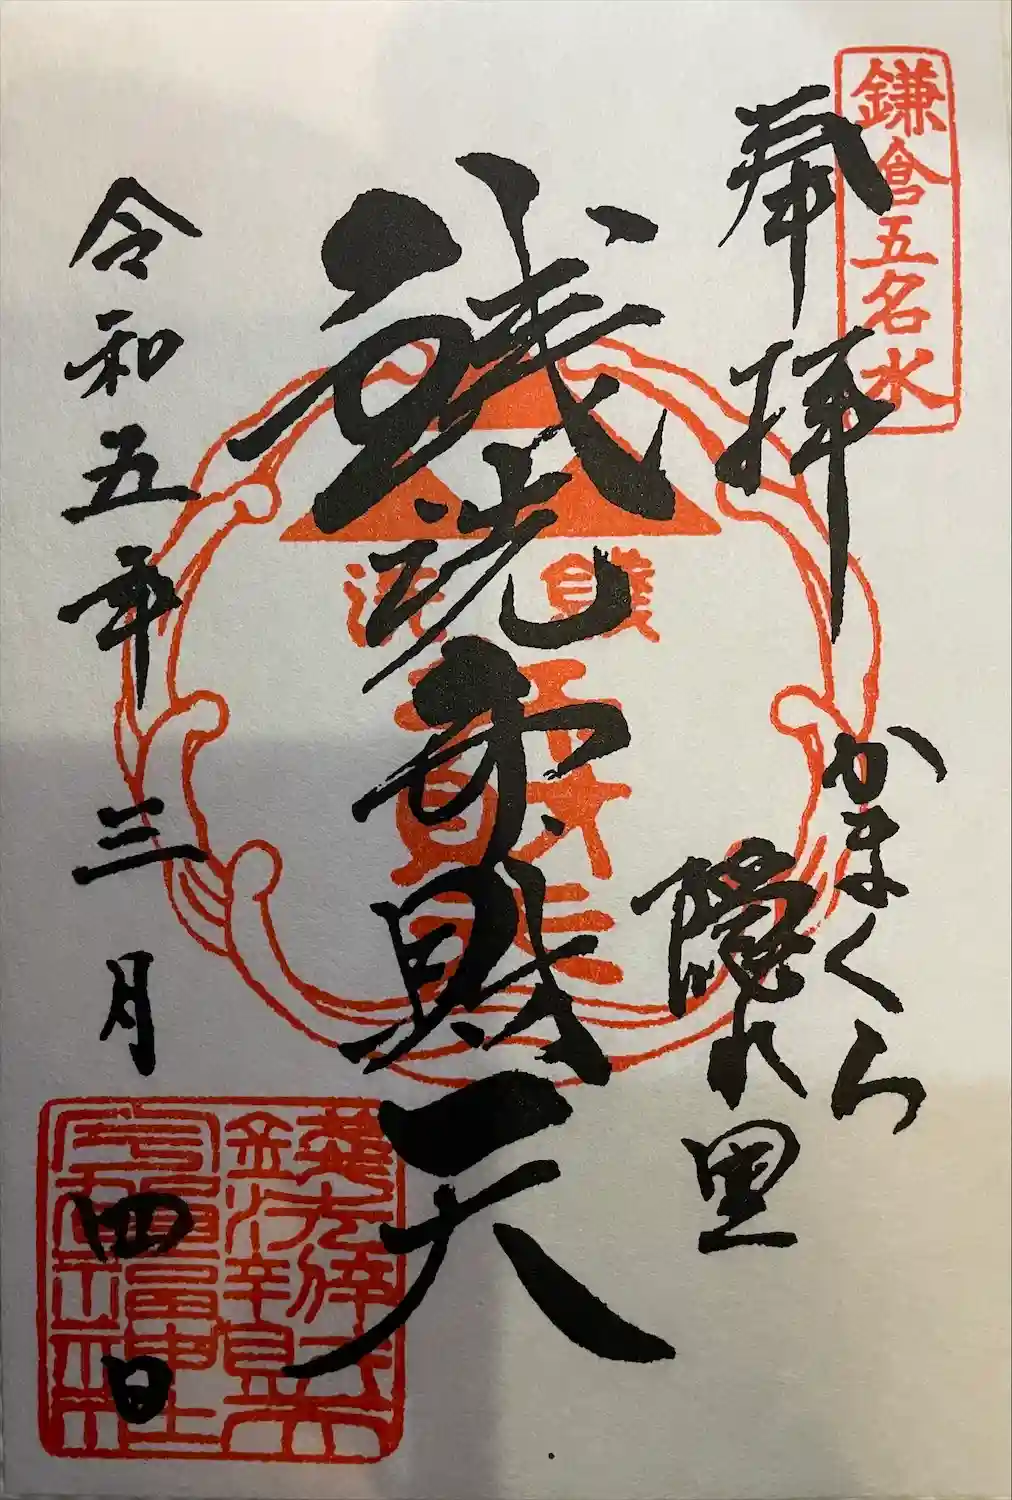 鎌倉五名水
奉拝
かまくら
隠れ里
銭洗弁財天
銭洗
弁財天
令和五年三月四日